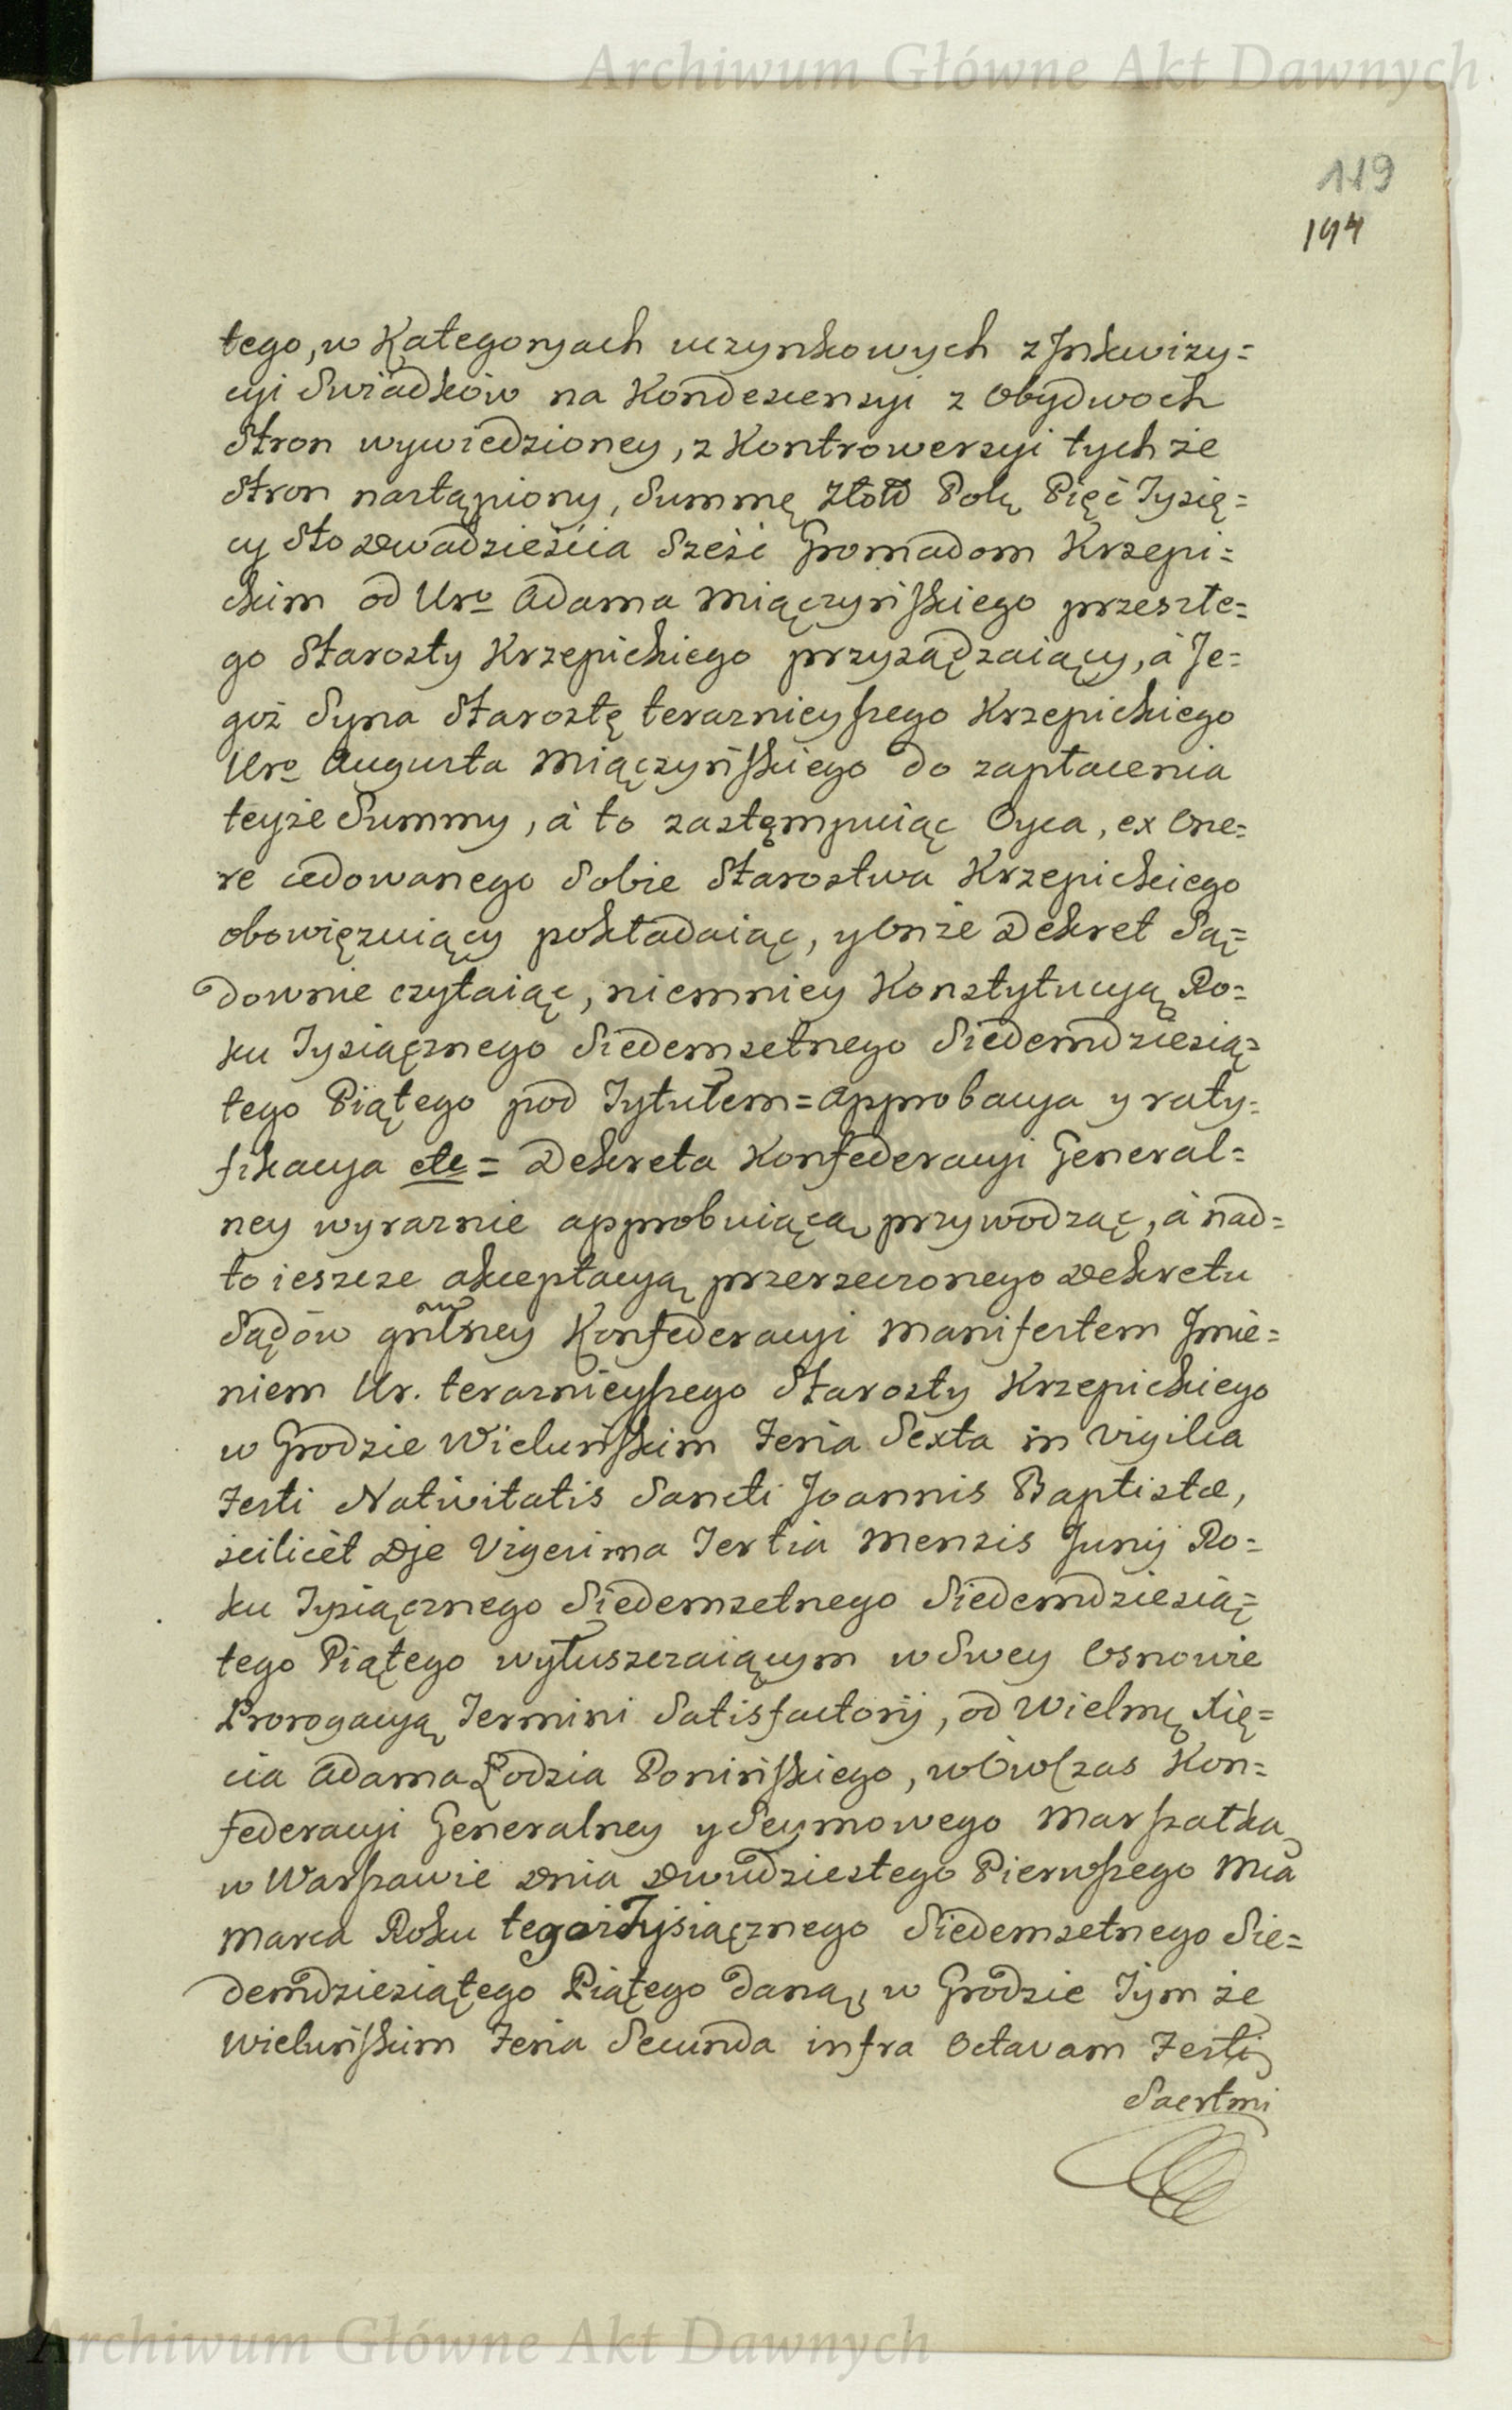 Archiwum Główne Akt Dawnych
119
194
tego, w Kategoryach uczynkowych z Jnkwizy=
cyi Swiadków na Kondescensyi z Obydwoch
Stron wywiedzioney, z Kontrowersyi tych że
Stron nastąpiony, Summę Złotł Polſ. Pięć Tysię=
cy Sto Dwadzieścia Sześć Gromadom Krzepi=
ckim od Uro Adama Miączyńſkiego przeszłe=
go Starosty Krzepickiego przysądzaiący, à Je=
goż Syna Starostę teraznieyſzego Krzepickiego
Uro Augusta Miączyńſkiego do zapłacenia
teyże Summy, à to zastęmpuiąc Oyca, ex One=
re cedowanego Sobie Starostwa Krzepickiego
obowięzuiący pokładaiąc, y Onże Dekret Są=
downie czytaiąc, niemniey Konstytucyą Ro=
ku Tysiącznego Siedemsetnego Siedemdziesią=
tego Piątego pod Tytułem = Approbacya y raty=
fikacya etc = Dekreta Konfederacyi General=
ney wyraznie approbuiącą przywodząc, à nad=
to ieszcze akceptacyą przerzeczonego Dekretu
Sądów gnłney Konfederacyi Manifestem Jmie=
niem Ur. teraznieyſzego Starosty Krzepickiego
w Grodzie Wieluńſkim Feria Sexta in Vigilia
Festi Nativitatis Sancti Joannis Baptistæ,
scilicèt Die Vigesima Tertia Mensis Junij Ro=
ku Tysiącznego Siedemsetnego Siedemdziesią=
tego Piątego wyłuszczaiącym w Swey Osnowie
Prorogacyą Termini Satisfactorij, od Wielmę Xię=
cia Adama Łodzia Ponińſkiego, w Owczas Kon=
federacyi Generalney y Seymowego Marſzałka,
w Warſzawie Dnia Dwudziestego Pierwſzego Mca
Marca Roku tegoż Tysiącznego Siedemsetnego Sie=
demdziesiątego Piątego daną, w Grodzie Tym że
Wieluńſkim Feria Secunda infra Octavam Festi
Sacrtmi
Archiwum Główne Akt Dawnych